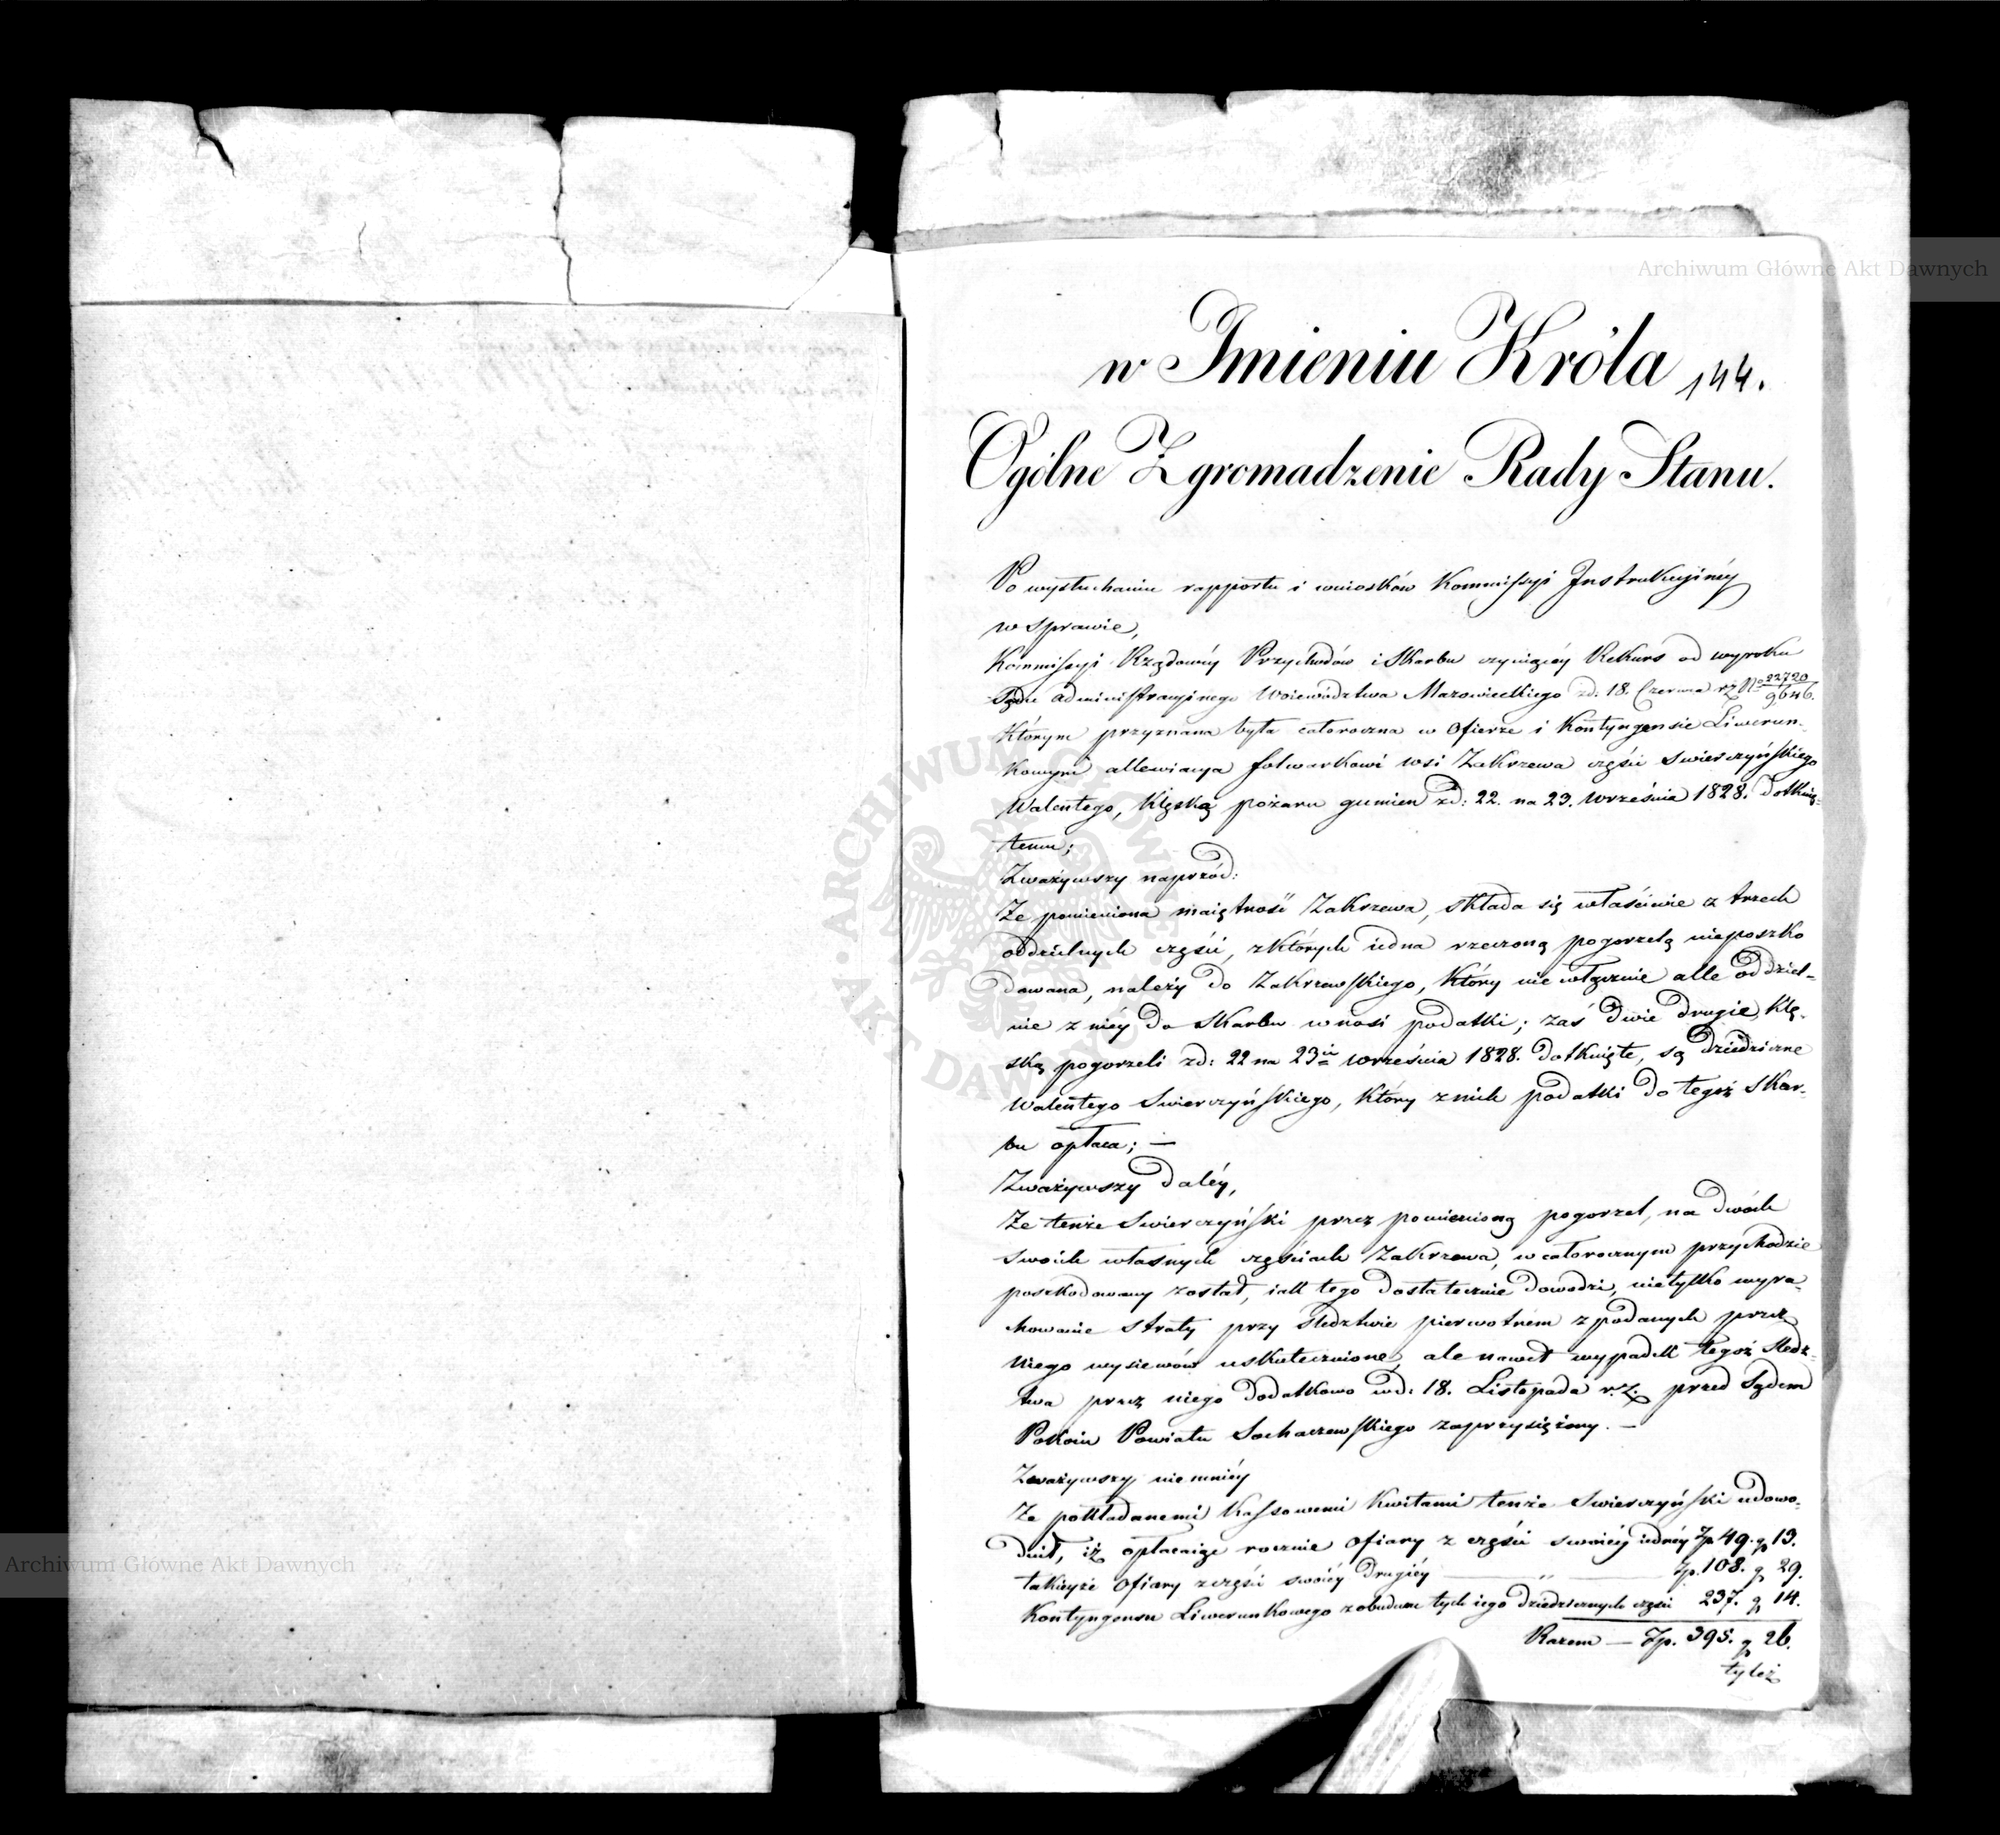 Archiwum Główne Akt Dawnych
w Imieniu Króla 144.
Ogólne Zgromadzenie Rady Stanu.
Po wysłuchaniu rapportu i wniosków Kommissyi Instrukcyiney
w sprawie,
Kommissyi Rządowéy Przychodów i Skarbu czyniącéy Rekurs od wyroku
Sądu Administracyinego Woiewództwa Mazowieckiego zd: 18. Czerwca rz No 22720/9646.
Którym przyznana była całoroczna w Ofierze i Kontyngensie Liwerun-
kowym allewiacya folwarkowi wsi Zakrzewa części Swierczyńskiego
Walentego, klęską pożaru gumien zd: 22. na 23. Września 1828. dotknię-
temu;
Zważywszy naprzód:
Ze pomieniona maiętność Zakrzewa, składa się właściwie z trzech
oddzielnych części, z których iedna rzeczoną pogorzelą nieposzko
dowana, należy do Zakrzewskiego, który nie włącznie alle oddziel-
nie z niéy do Skarbu wnosi podatki; zaś dwie drugie, klę-
ską pogorzeli zd: 22 na 23 Września 1828. dotknięte, są dziedziczne
Walentego Swierczyńskiego, który z nich podatki do tegoż Skar-
bu opłaca; —
Zważywszy daléy,
Ze tenże Swierczyński przez pomienioną pogorzel, na dwóch
swoich własnych częściach Zakrzewa, w całorocznym przychodzie
poszkodowany został, iak tego dostatecznie dowodzi, nietylko wyra-
chowanie straty przy śledztwie pierwotnem z podanych przez
niego wysiewów uskutecznione, ale nawet wypadek tegoż śledz-
twa przez niego dodatkowo wd: 18. Listopada r.z. przed Sądem
Pokoiu Powiatu Sochaczewskiego zaprzysiężony. —
Zważywszy niemniéy
Ze pokładanemi Kassowemi Kwitami tenże Swierczyński udowo-
dnił, iż opłacaiąc rocznie Ofiary z części swoiéy iednéy Zp 49. g 13.
takieyże Ofiary z części swoiéy drugiéy — " — Zp. 108. g 29.
Kontyngensu Liwerunkowego z obudwu tych iego dziedzicznych części 237. g 14.
Razem — Zp. 395. g 26.
tyleż
ARCHIWUM GŁÓWNE AKT DAWNYCH
Archiwum Główne Akt Dawnych